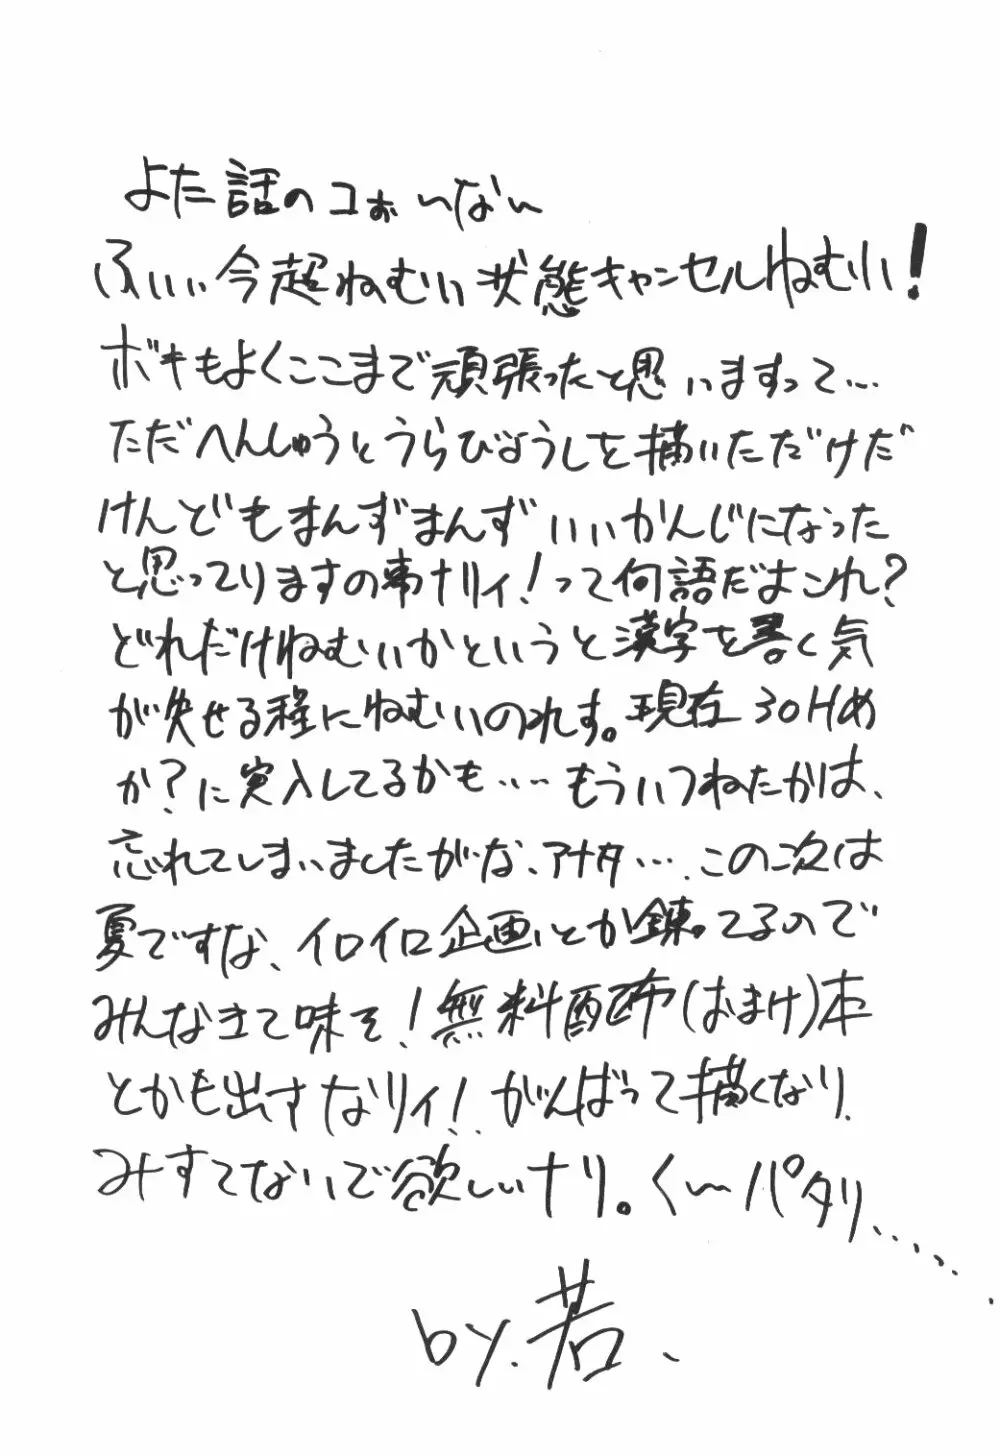 よた話のコぉいない
ふぃぃ今超ねむい状態キャンセルねむい!
ボキもよくここまで頑張ったと思いますって…
ただへんしゅうとうらびょうしを描いただけだ
けんどもまんずまんずいいかんじになった
と思ってりますの事ナリィ!って何語だよこれ?
どれだけねむいかというと漢字を書く気
が失せる程にねむいのれす。現在30Hめ
か?に突入してるかも…‥もういつねたかは、
忘れてしまいましたがな、アナタ…、この次は
夏ですな、イロイロ企画とか錬ってるので
みんなきて味そ!無料配布(おまけ)本
とかも出すなりィ!がんばって描くなり、
みすてないで欲しいナリ。く〜パタリ、……
by.若、